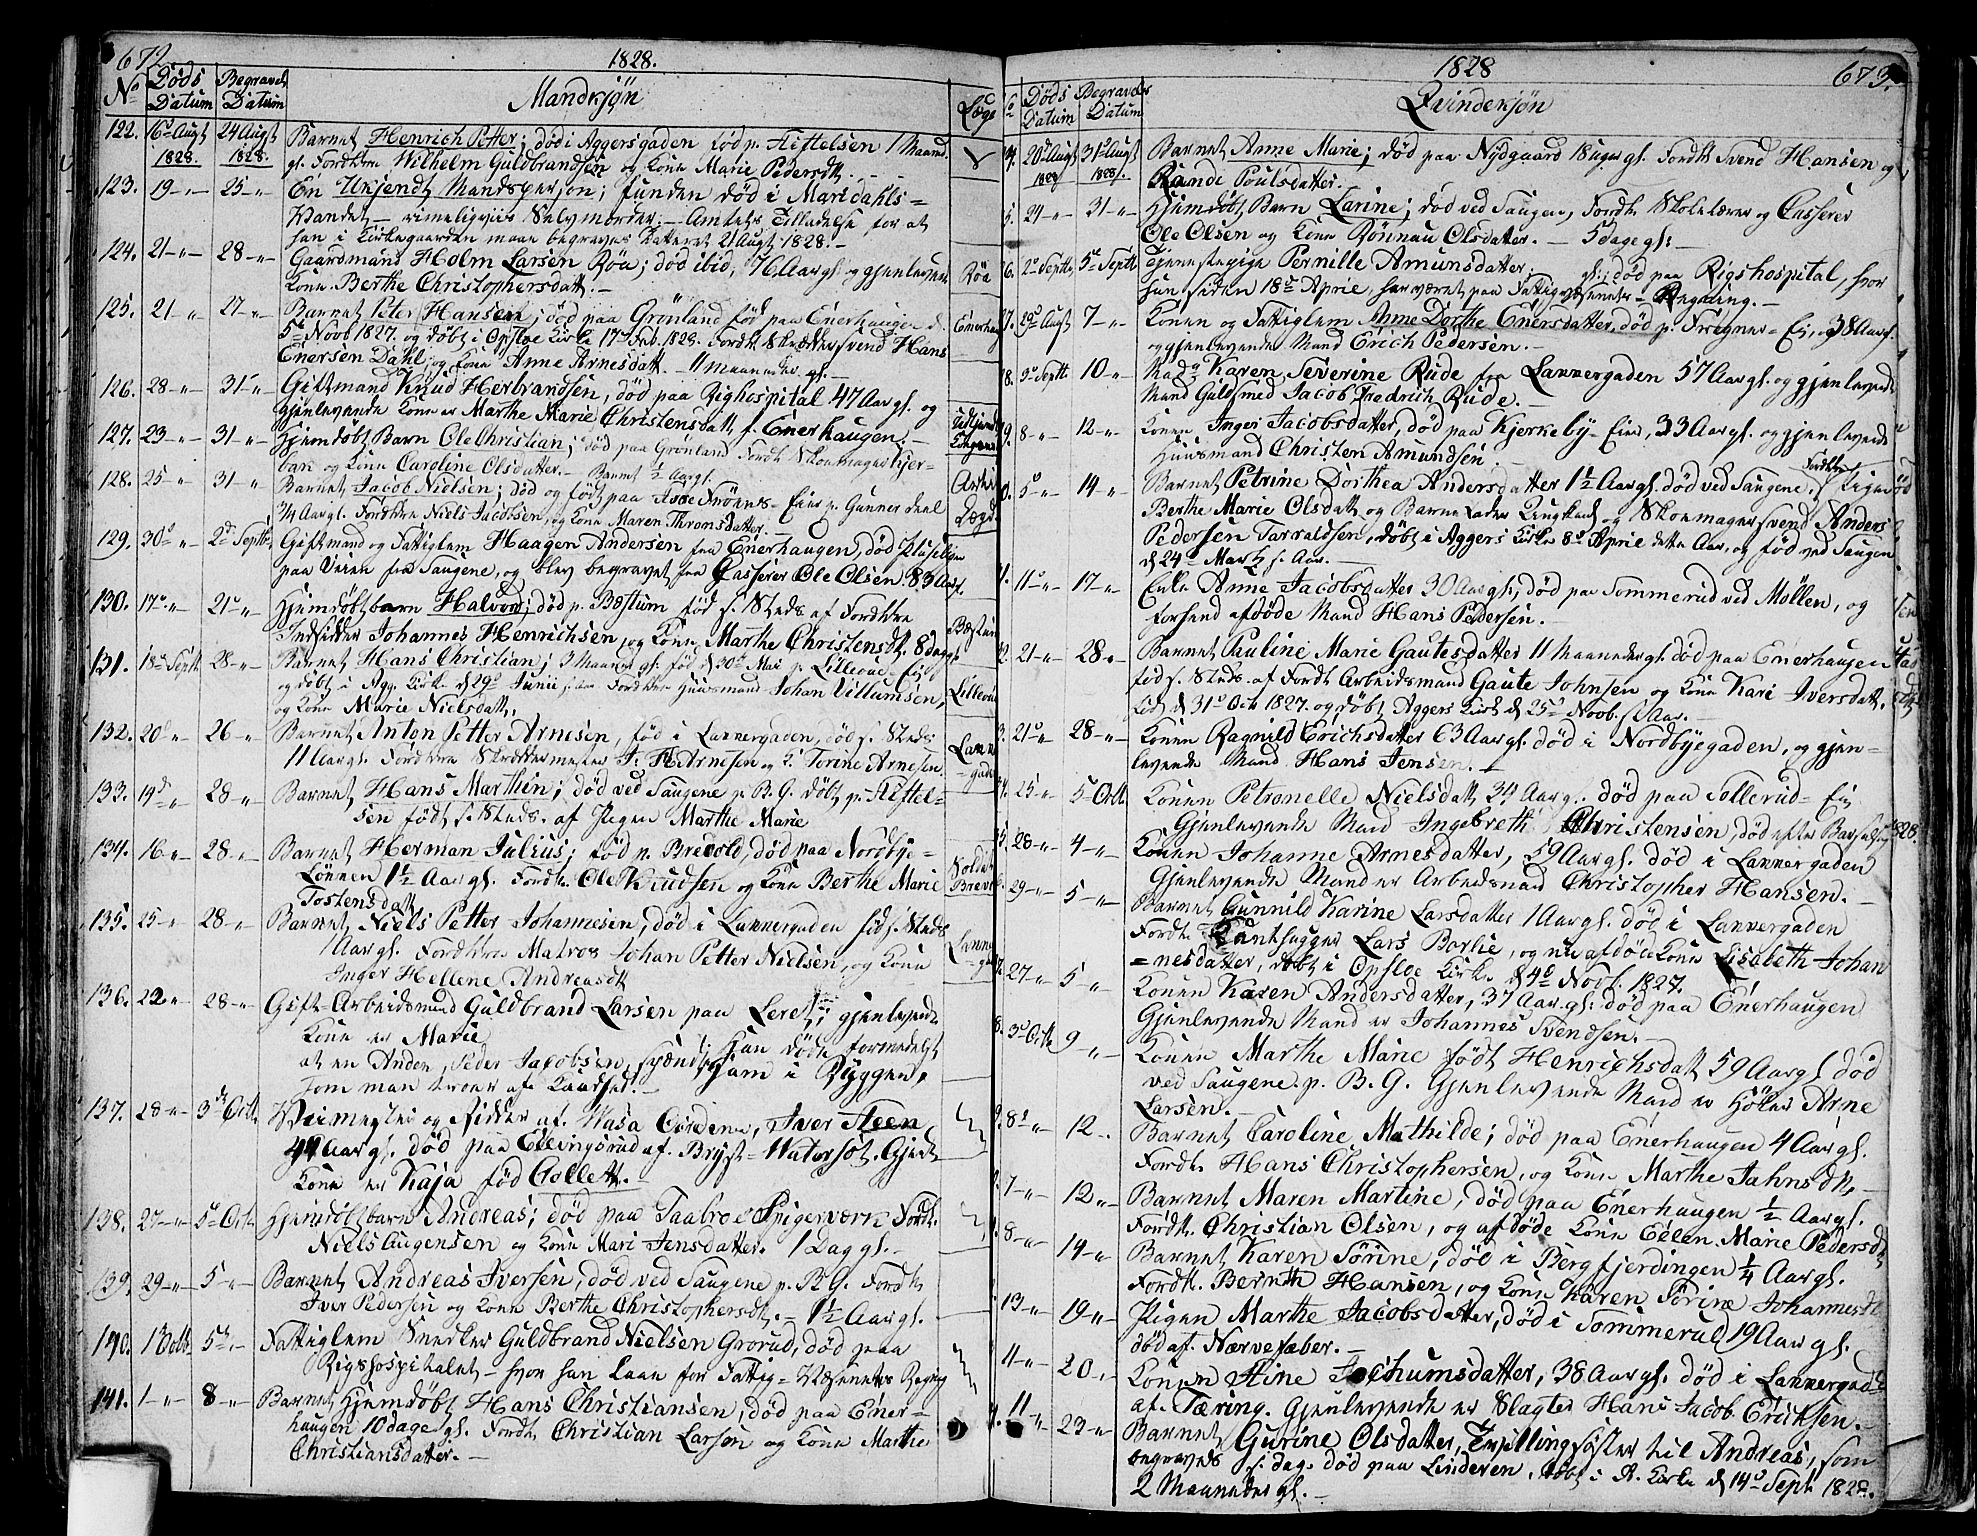 672
1828.
No
Døds Datum
Begravels Datum
Mandkjøn
122. 16d Augt 1828. 24 Augt 1828. Barnet Henrich Petter; død i Aggersgaden fød p. Stiftelsen 1 Maaned
gl. Fordldre Wilhelm Guldbrandsen og Kone Marie Pedersdt.
123. 19 -"- 25 -"- En Ukjendt Mandsperson; funden død i Maridahls=
Vandet - rimeligviis Selvmorder. - Amtets Tilladelse for at
han i Kirkegaarden maae begraves dateret 21 Augt 1828. -
124. 21 -"- 28 -"- Gaardmand Holm Larsen Røa; død ibid, 76 Aar gl. og gjenlevende
Kone Berthe Christophersdatt. -
Røa
125. 21 " 27 -"- Barnet Peter Hansen; død paa Grønland fød paa Enerhaugen d.
5te Novb 1827. og døbt i Opsloe Kirke 17de Feb. 1828. Fordt Skræddersvend Hans
Enersen Dahl, og Kone Anne Arnesdatt. - 11 maaneder gl. -
Enerhau
126. 28 -"- 31 -"- Giftmand Knud Herbrandsen, død paa Righospital 47 Aar gl. og
gjenlevende Kone er Marthe Marie Christensdatt p. Enerhaugen. -
127. 23 -"- 31 -"- Hjemdøbt Barn Ole Christian; død paa Grønland Fordt Skoemager
og Kone Caroline Olsdatter. - Barnet ½ Aar gl.
128. 25 -"- 31 -"- Barnet Jacob Nielsen; død og født paa Frøens-Eier
¾ Aar gl. Fordldre Niels Jacobsen, og Kone Maren Thomsdatter. -
129. 30d -"- 2d Septbr Giftmand og Fattiglem Haagen Andersen fra Enerhaugen, død
paa Veien fra Saugene, og blev begravet fra Casserer Ole Olsen 83 Aar.
130. 17d -"- 21d -"- Hjemdøbt barn Halvor; død p. Bestum fød s. Steds af Fordldre
Indsidder Johannes Henrichsen, og Kone Marthe Christensdt. 8 dage gl.
Bestun
131. 18d Septb 28 -"- Barnet Hans Christian; 3 Maaned gl. fød d 30d Mai p. Lilleoue-Eie
og døbt i Agg. Kirke d 29d Junii Fordldre Huusmand Johan Villumsen,
og Kone Marie Nielsdatt.
Lilleou
132. 20d -"- 26 -"- Barnet Anton Petter Arnesen, fød i Lannergaden, død s. Steds
11 Aar gl. Fordldre Skræddermester Arnesen og K. Torine Arnesen.
133. 19d -"- 28 -"- Barnet Hans Marthin; død ved Saugene p. B. G. døbt p. Stiftel=
sen født s. Steds. af Pigen Marthe Marie
134. 16 -"- 28 -"- Barnet Herman Julius; fød p. Brevold, død paa Nordbye=
Lønnen 1½ Aar gl. Fordt. Ole Knudsen og Kone Berthe Marie
Tostensdatt
135. 25 -"- 28 -"- Barnet Niels Petter Johannesen, død i Lannergaden fød s. Steds
1 Aar gl. Fordldre Matros Johan Petter Nielsen, og Kone
Inger Hellene Andreasdt
136. 22 " 28 -"- Gift-Arbeidsmand Guldbrand Larsen paa Leret; gjenlevende
Kone er Marie Han døde formedelst
at en Anden, Peder Jacobsen, spændte ham i Ryggen,
som man troer af Kaadhed. -
137. 28 -"- 3de Octb. Viimester og Ridder af Wasa Ordenen, Iver Steen
44 Aar gl. død paa Ellingsrud af Bryst-Watersot. Gjenl.
Kone er Kaja fød Collett.
138. 27 -"- 5d Oct. Hjemdøbt barn Andreas; død paa Taabroe Spigerværk Fordt.
Niels Augensen og Kone Mari Jensdatter. 1 Dag gl. -
139. 29 -"- 5 -"- Barnet Andreas Iversen, død ved Saugene p. B. G. Fordt
Iver Pedersen og Kone Berthe Christophersdt. - 1½ Aar gl. -
140. 1 Octb. 5d -"- Fattiglem Snedker Guldbrand Nielsen Grorud, død paa
Rigshospitalet - hvor han laae for Fattig-Væsenets Regng
141. 1 -"- 8 -"- Barnet Hjemdøbt Hans Christiansen, død paa Ener=
haugen 10 dage gl. Fordt Christian Larsen og Kone Marthe
Christiansdatter. -
1828
673.
Døds Datum
Begravels Datum
Qvindekjøn
20d Augt 1828 31d Augt 1828. Barnet Anne Marie; død paa Nydgaard 18 uger gl. Fordt Svend Hansen og
Rande Poulsdatter. -
24 -"- 31 -"- Hjemdøbt Barn Larine; død ved Saugen, Fordt Skolelærer og Casserer
Ole Olsen og Kone Rønnau Olsdatter. - 5 dage gl: -
2d Septb 5d Septb Tjenestepige Pernille Amunsdatter; gl: død paa Rigshospital, hvor
hun siden 18de April, har været paa Fattigvæsenets-Regning. -
29d Augt 7 -"- Konen og Fattiglem Anne Dorthe Enersdatter, død p. Frogner-Eie, 38 Aar gl.
og gjenlevende Mand Erich Pedersen. -
3d Septb 10 -"- Mad. Karen Severine Rude fra Lannergaden 57 Aar gl. og gjenlevende
Mand Guldsmed Jacob Fredrich Rude. -
8 -"- 12 -"- Konen Inger Jacobsdatter, død paa Kjerkeby-Eier, 33 Aar gl. og gjenlevende
Huusmand Christen Amundsen. -
5d -"- 14 -"- Barnet Petrine Dorthea Andersdatter 1½ Aar gl. død ved Saugene. Fordldre Pigen
Berthe Marie Olsdatt og Barnefader Ungkarl og Skoemagersvend Anders
Pedersen Tarraldsen, døbt i Aggers Kirke 8d April dette Aar, og fød ved Saugen
d 24d Martz s. Aar. -
11d -"- 17 -"- Enke Anne Jacobsdatter 30 Aar gl; død paa Sommerud ved Møllen, og
forhend afdøde Mand Hans Pedersen. -
21 -"- 28 -"- Barnet Pauline Marie Gautesdatter 11 Maaneder gl. død paa Enerhaugen
fød s. Steds. af Fordt Arbeidsmand Gaute Johnsen og Kone Kari Iversdatt.
fød d 31d Oct 1827. og døbt Aggers Kirk d 25d Novb. s. Aar. -
21d -"- 28 -"- Konen Ragnild Erichsdatter 63 Aar gl. død i Nordbyegaden, og gjen=
levende Mand Hans Jensen. -
25 -"- 5 Octb. Konen Petronelle Nielsdatt 34 Aar gl. død paa Tollerud-Eie
Gjenlevende Mand Ingebreth Christensen, død efter Barselseng
28 -"- 4 -"- Konen Johanne Arnesdatter, 59 Aar gl. død i Lannergaden
Gjenlevende Mand er Arbeidsmand Christopher Hansen. -
29 -"- 5 -"- Barnet Gunnild Karine Larsdatter 1 Aar gl. død i Lannergaden
Fordt Lars Borlie, og nu afdøde Kone Lisabeth Johan
=nesdatter, døbt i Opsloe Kirke d 4d Novb. 1827.
27 -"- 5 -"- Konen Karen Andersdatter, 37 Aar gl: død paa Enerhaugen
Gjenlevende Mand er Johannes Svendsen. -
3d Octb 9 -"- Konen Marthe Marie født Henrichsdatt 59 Aar gl død
ved Saugene p. B. G. Gjenlevende Mand er Høker Arne
Larsen. -
8d -"- 12 -. Barnet Caroline Mathilde; død paa Enerhaugen 4 Aar gl.
Fordt. Hans Christophersen, og Kone Marthe Jahnsdt. -
7 -"- 12 -"- Barnet Maren Martine, død paa Enerhaugen ½ Aar gl.
Fordt. Christian Olsen, og afdøde Kone Eelen Marie Pedersdt
8 -"- 14 -"- Barnet Karen Sørine, død i Bergfjerdingen ¼ Aar gl.
Fordt. Bernth Hansen, og Kone Karen Sørine Johannesdt
13 -"- 19 -"- Pigen Marthe Jacobsdatter, død i Sommerud 19 Aar gl.
død af Nærvefæber. -
11 -"- 20 -"- Konen Stine Jochumsdatter, 38 Aar gl. død i Lannergade
af Tæring. Gjenlevende er Slagter Hans Jacob Ericksen. -
11 -"- 23 -"- Barnet Gurine Olsdatter, Tvillingsøster til Andreas, som
begraves s. dag. død paa Linderen, døbt i A. Kirke d 14d Sept 1828.
2 Maaneder gl. -